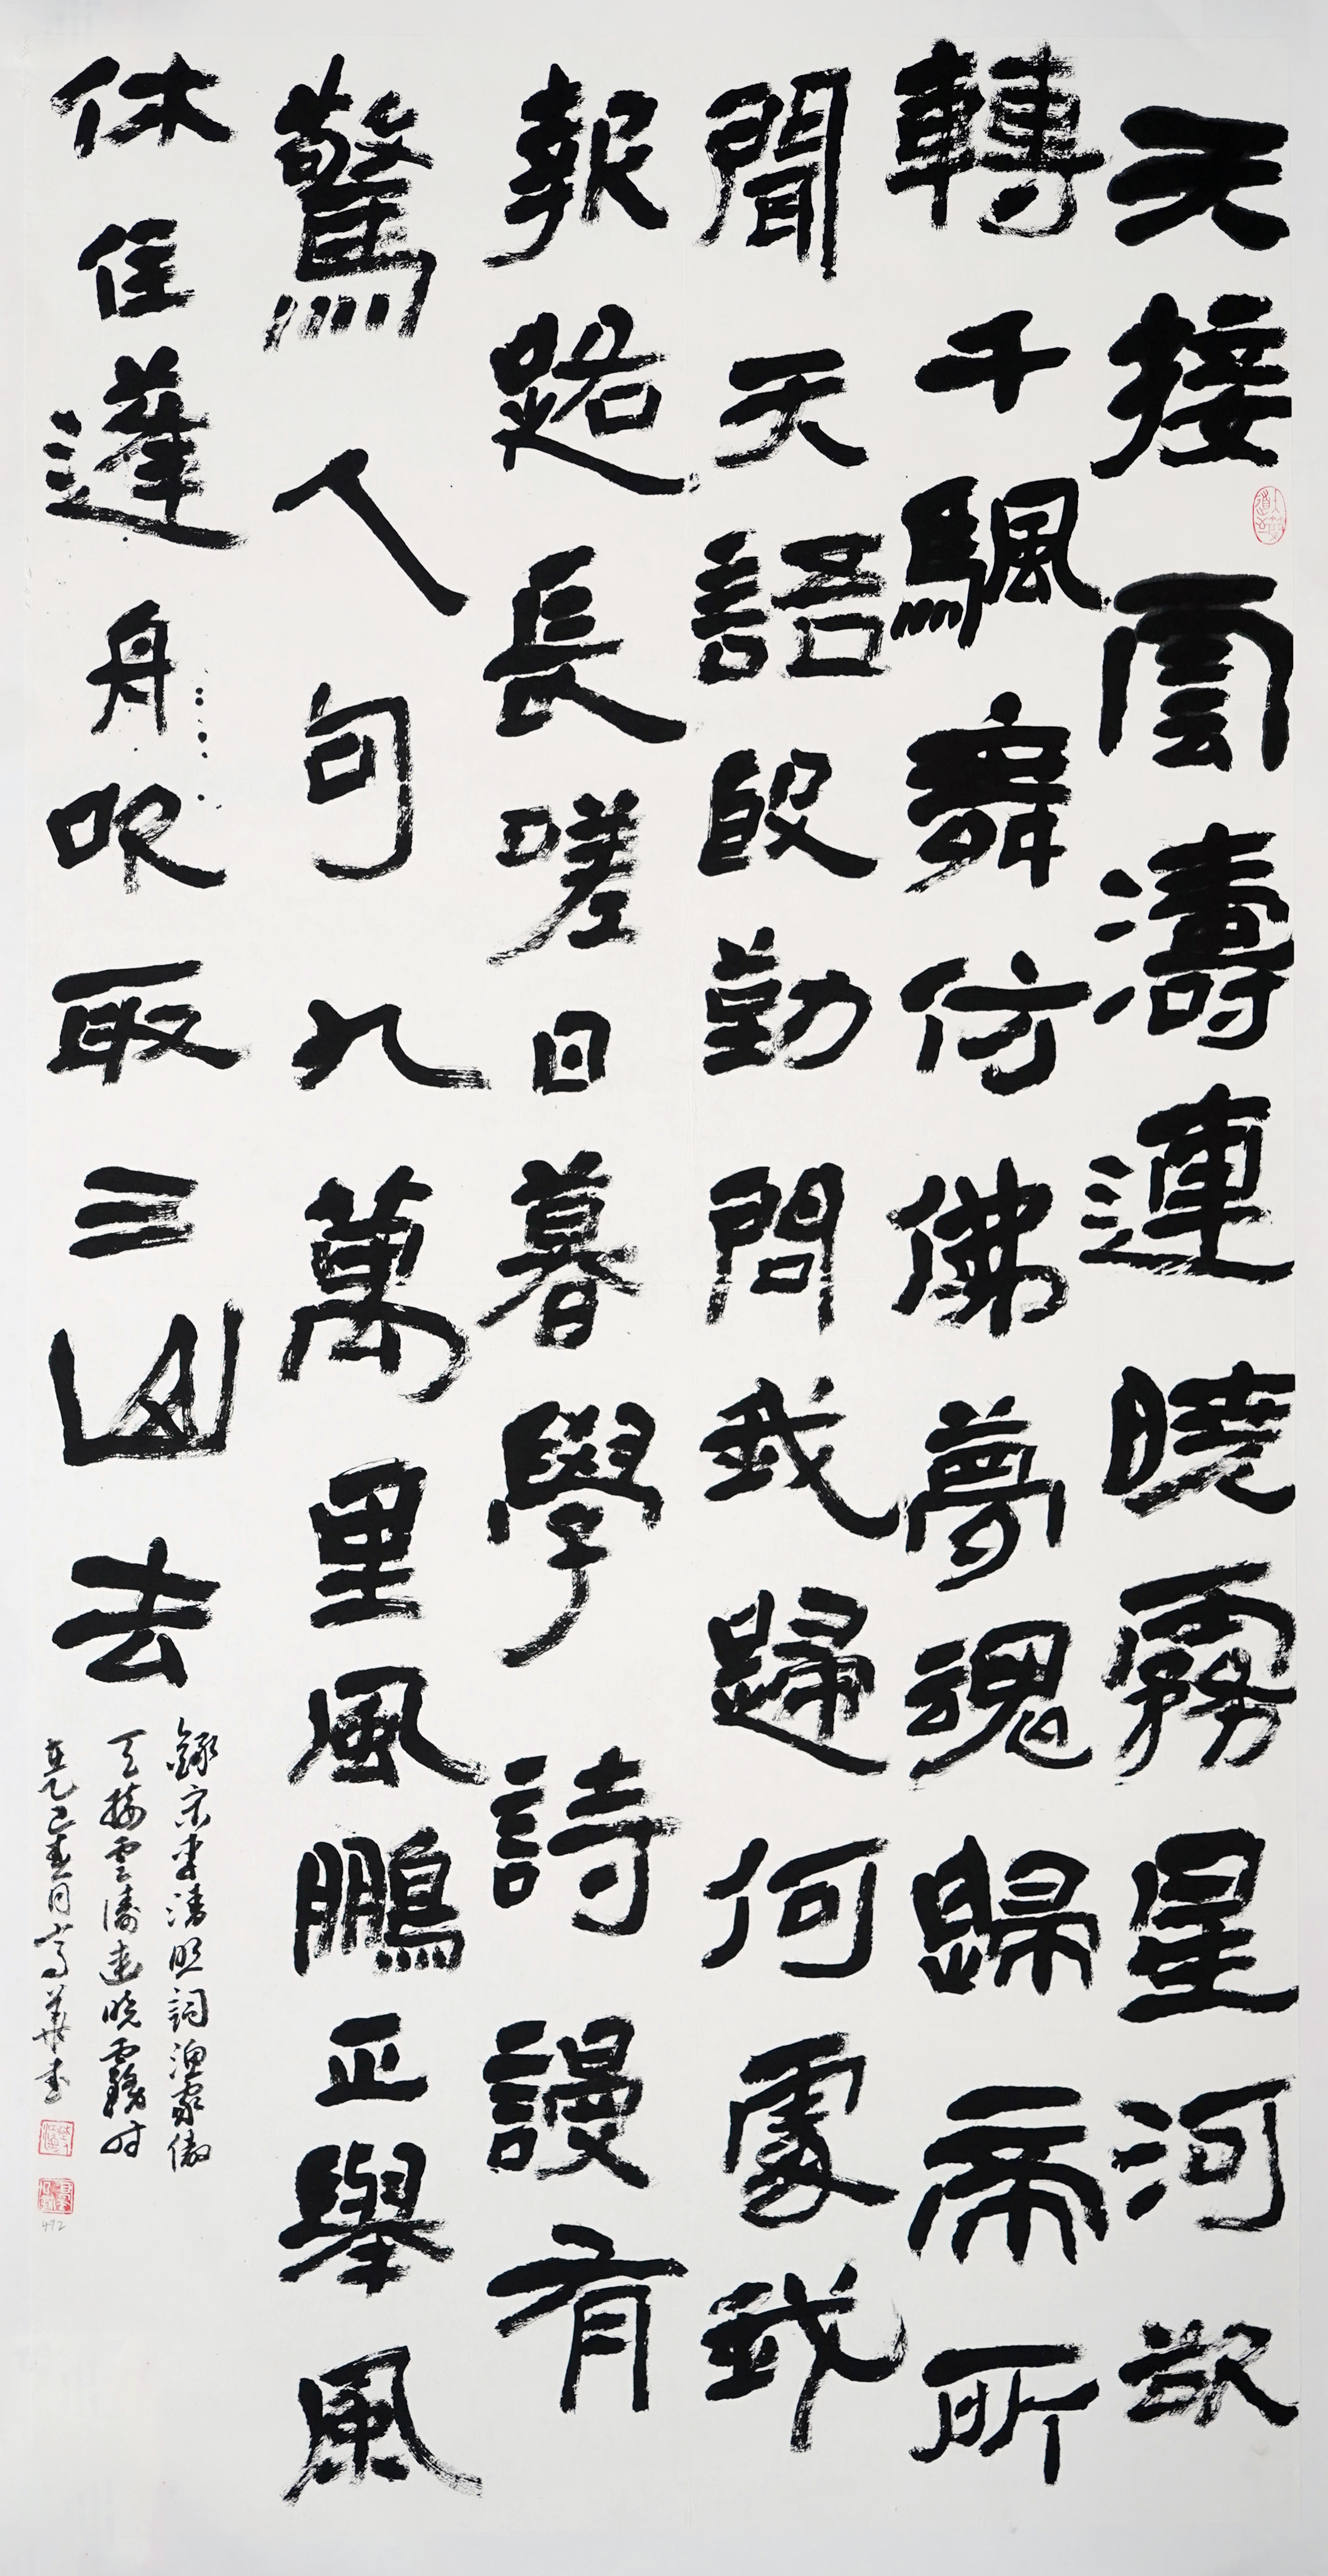 天接雲濤連曉霧星河欲
轉千颿舞仿佛夢魂歸帝所
聞天語殷勤問我歸何處我
報路長嗟日暮學詩謾有
驚人句九萬里風鵬正舉風
休住蓬舟吹取三山去
錄宋李清照詞漁家傲
天接雲濤連曉霧時
在乙巳春月 華書
472